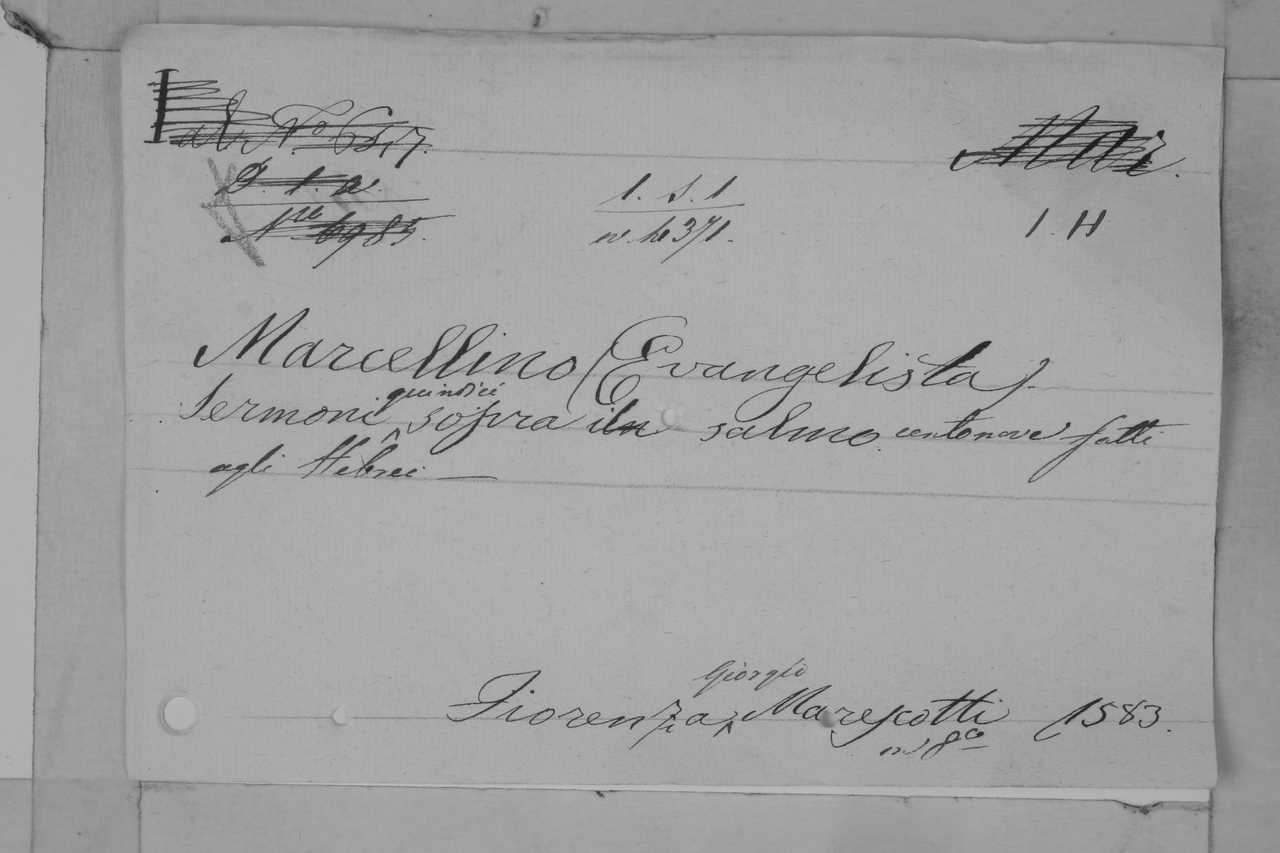 N.o 6517.
1. S. 1
I. H
6985.
Marcellino (Evangelista).
Sermoni quindici sopra il salmo centonove fatti
agli Hebrei —
Fiorenza, Giorgio Marescotti 1583.
in 8.o